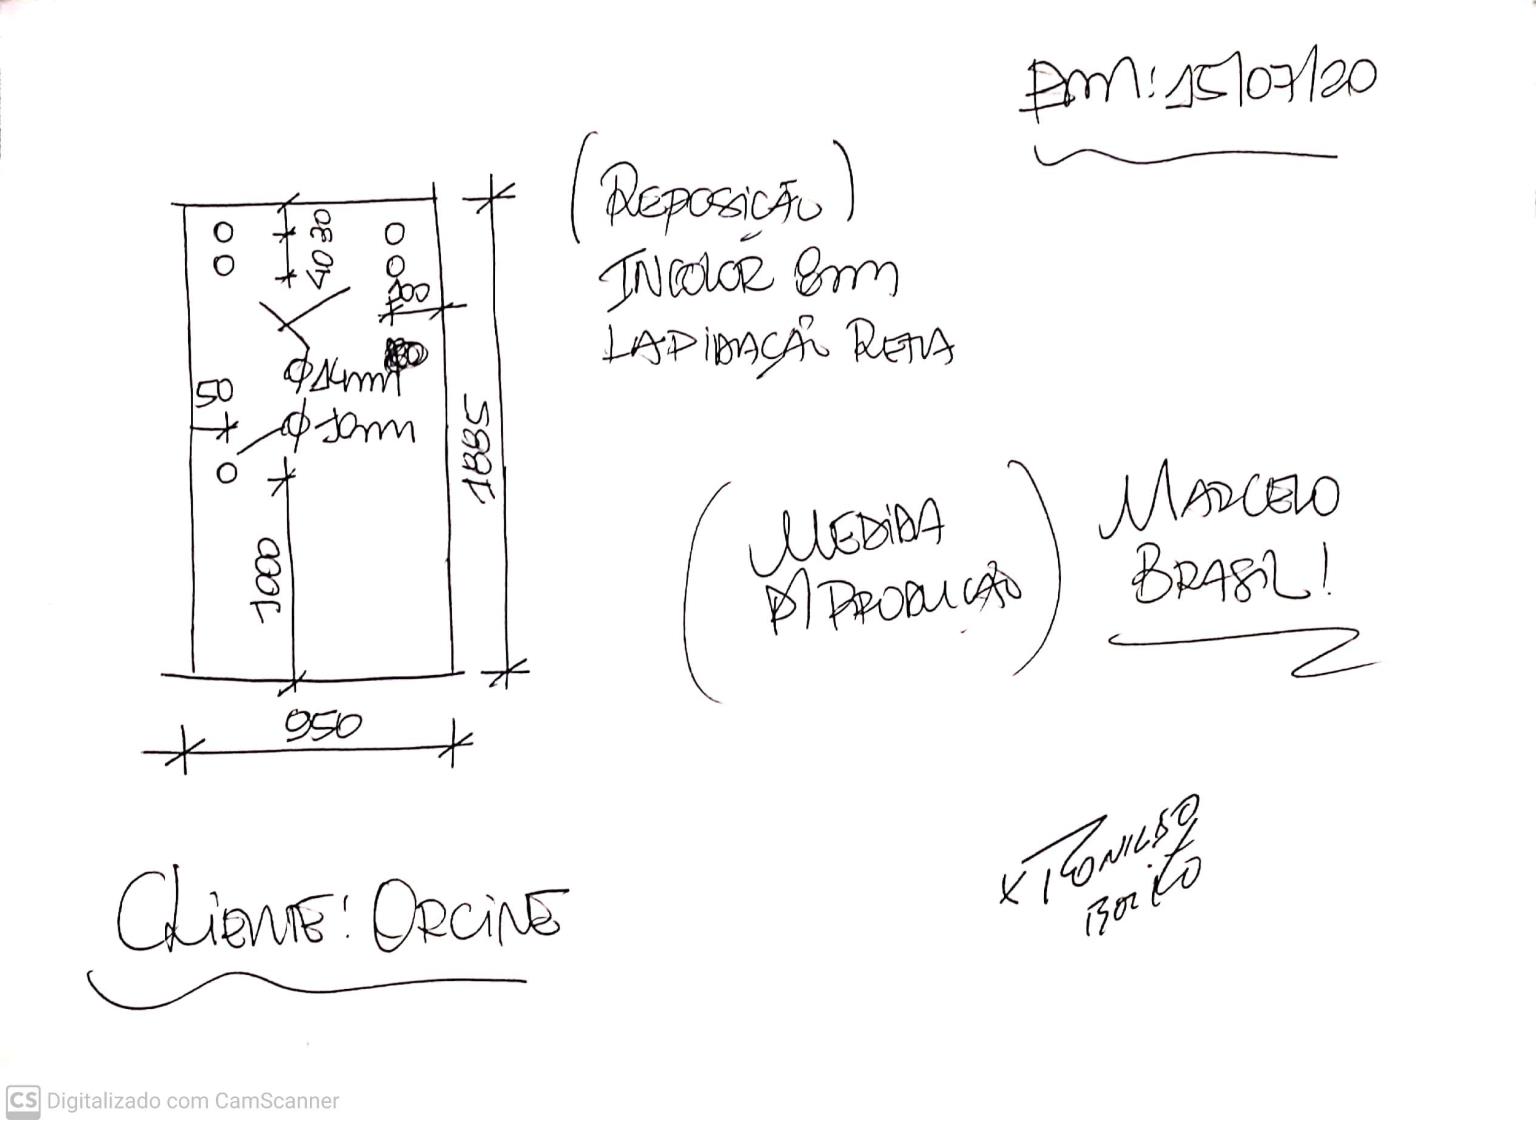 EM: 15/07/20
(REPOSIÇÃO)
INCOLOR 8mm
LAPIDAÇÃO RETA
30
40
100
Ø14mm
50
Ø10mm
1885
1000
950
(MEDIDA
P/ PRODUÇÃO)
MARCELO
BRASIL!
CLIENTE: ORCINE
X RONILDO
CS Digitalizado com CamScanner